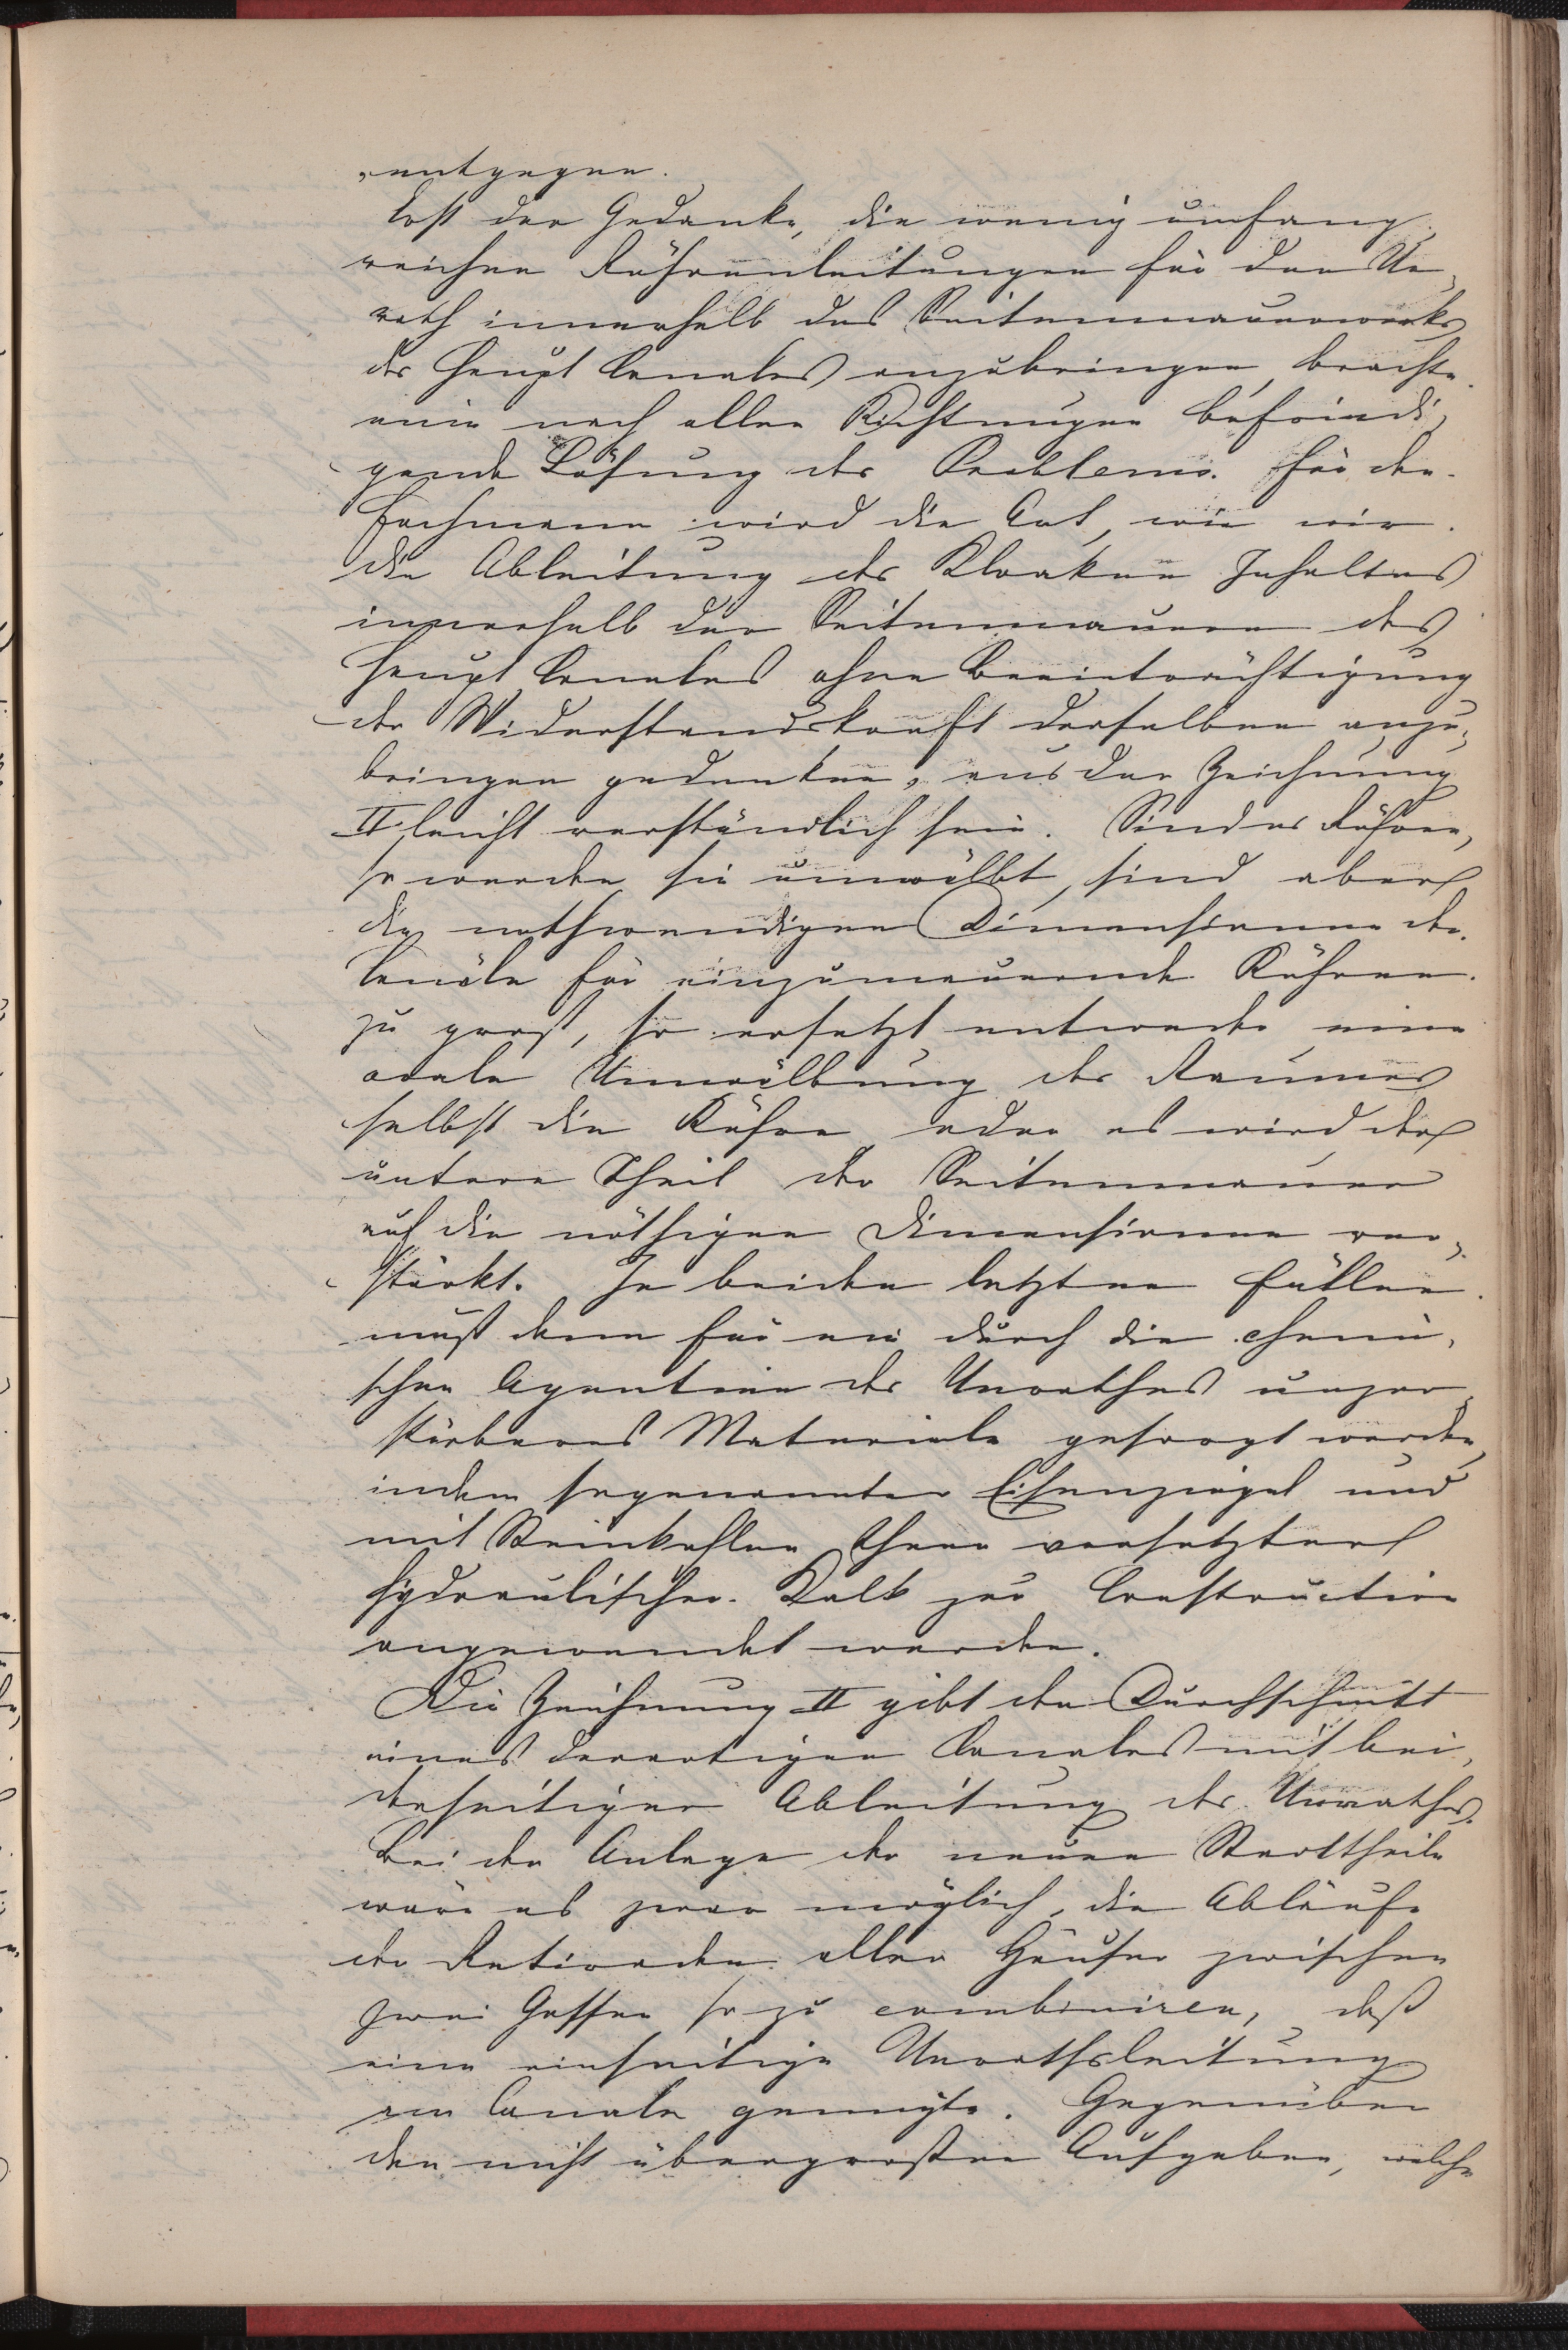 „entgegen.
Erst der Gedanke, die wenig umfang„
reichen Röhrenleitungen für den Un„
rath innerhalb des Seitenmauerwerks
des Haupt Canales anzubringen, brachte
eine nach allen Richtungen befriedi„
gende Lösung des Problems. Für den
Fachmann wird die Art, wie wir
die Ableitung des Kloaken Inhaltes
innerhalb der Seitenmauern des
Haupt Canales ohne Beeinträchtigung
der Widerstandskraft derselben anzu„
bringen gedenken, aus der Zeichnung
II leicht verständlich sein. Sind es Röhren,
so werden sie umwölbt, sind aber
die nothwendigen Dimensionen der
Canäle für einzumauernde Röhren
zu groß, so ersetzt entweder eine
ovale Umwölbung des Raumes
selbst die Röhre oder es wird der
untere Theil der Seitenmauer
auf die nöthigen Dimensionen ver„
stärkt. In beiden letzten Fällen
muß dann für ein durch die chemi„
schen Agentien des Unrathes unzer„
störbares Materiale gesorgt werden,
indem sogenannter Eisenziegel und
mit Steinkohlen Theer versetzter
hydraulischer Kalk zur Construction
angewendet werden.
Die Zeichnung II gibt den Durchschnitt
eines derartigen Canales mit bei„
derseitiger Ableitung des Unrathes.
Bei der Anlage der neuen Stadttheile
wäre es zwar möglich, die Abläufe
der Retiraden aller Häuser zwischen
zwei Gassen so zu combiniren, daß
eine einseitige Unrathsleitung
im Canale genügte. Gegenüber
den nicht übergroßen Aufgaben, welche